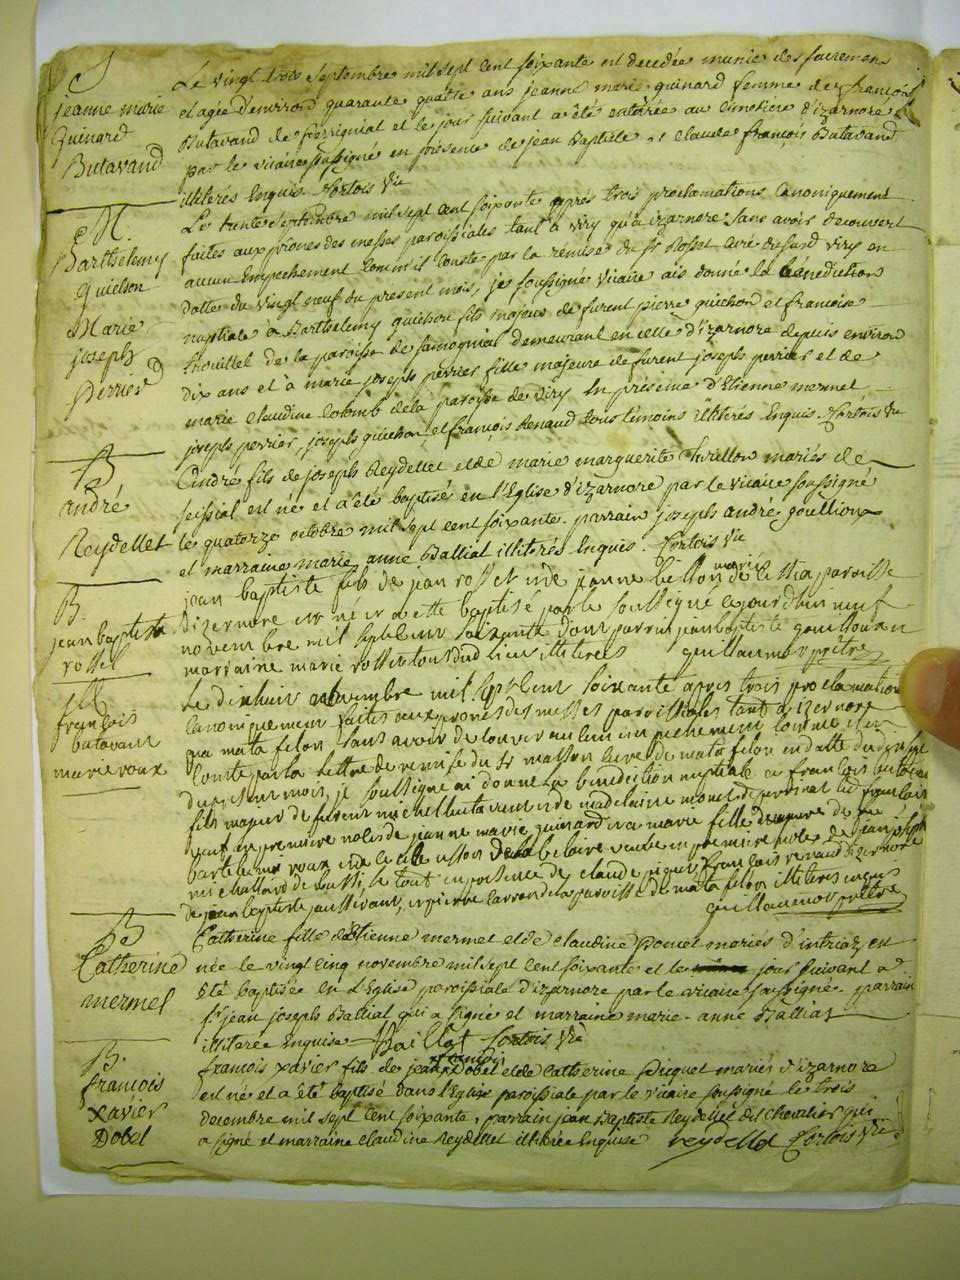 S
jeanne marie
Guinard
Butavand
Le vingt trois Septembre mil sept cent soixante est decedée munie des sacremens
et agée d'environ quarante quatre ans jeanne marie guinard femme de françois
Butavand de et le jour suivant a été enterée au cimetiere d'izarnore
par le vicaire soussigné en presence de jean baptiste et claude françois Butavand
illiterés enquis. Cortois Vic
M.
Barthelemy
Guichon
Marie
joseph
Perrier
Le trente Septembre mil sept cent soixante après trois proclamations Canoniquement
faites aux prones des messes paroissiales tant a Viry qu'a izarnore sans avoir decouvert
aucun empechement comm'il conste par la remise du Sr Rosset curé dudit Viry en
datte du vingt neuf du present mois, je soussigné Vicaire ais donné la bénédiction
nuptiale a Barthelemy guichon fils majeur de furent pierre guichon et françoise
de la paroisse de Samognia demeurant en celle d'izarnore depuis environ
dix ans et à marie joseph perrier fille majeure de furent joseph perrier et de
marie claudine Colomb de la paroisse de Viry En presence d'Etienne mermet
joseph perrier, joseph guichon, et françois Renaud tous temoins illiterés Enquis. Cortois Vic
B
André
Reydellet
André fils de joseph Reydellet et de marie marguerite mariés de
est né et a été baptisé en l'Eglise d'izarnore par le vicaire soussigné
le quatorze octobre mil sept cent soixante. parrain joseph andré goullioux
et marraine marie anne Balliat illiterés Enquis. Cortois Vic
B.
jean baptiste
rosset
jean baptiste fils de jean rosset et de jeanne bellon mariés de la paroisse
dizernore est né et a ette baptisé par le soussigné cejourdhui neuf
novembre mil sept cent soixante dont parrin jean baptiste
marraine marie rosset tous dud lieu illiteres guillaumot prêtre
M
françois
butavant
marie roux
Le dixhuit novembre mil sept cent soixante apres trois proclamations
canoniquement faites aux prones des messes paroissiales tant a izernore
qua matafelon sans avoir decouvert aucun empechement comme il en
conste par la lettre de remise du Sr masson curé de matafelon en datte du
du present mois, je soussigné ai donné la benediction nuptiale a françois butavant
fils majeur de furent michel butavant et de madelaine
veuf en premiere noles de jeanne marie guinard et a marie fille de
bartelemi roux et de veuve en premiere noles de jean
le tout en presence de claude françois renaud dizernore
de jean baptiste et pierre de la paroisse de matafelon illiteres enquis
guillaumot prêtre
B
Catherine
mermet
Catherine fille d'Etienne mermet et de claudine Poncet mariés d'intriaz est
née le vingt cinq novembre mil sept cent soixante et le jour suivant a
été baptisée en l'Eglise paroissiale d'izarnore par le vicaire soussigné. parrain
Sr jean joseph Balliat qui a signé et marraine marie-anne Balliat
illiterée Enquise Cortois Vic
B.
françois
xavier
Dobel
françois xavier fils de jean françois Dobel et de Catherine Picquet mariés d'izarnore
est né et a été baptisé dans l'Eglise paroissiale par le vicaire soussigné le trois
decembre mil sept cent soixante. parrain jean Baptiste Reydellet dit chevalier qui
a signé et marraine claudine Reydellet illiterée Enquise reydellet Cortois Vic